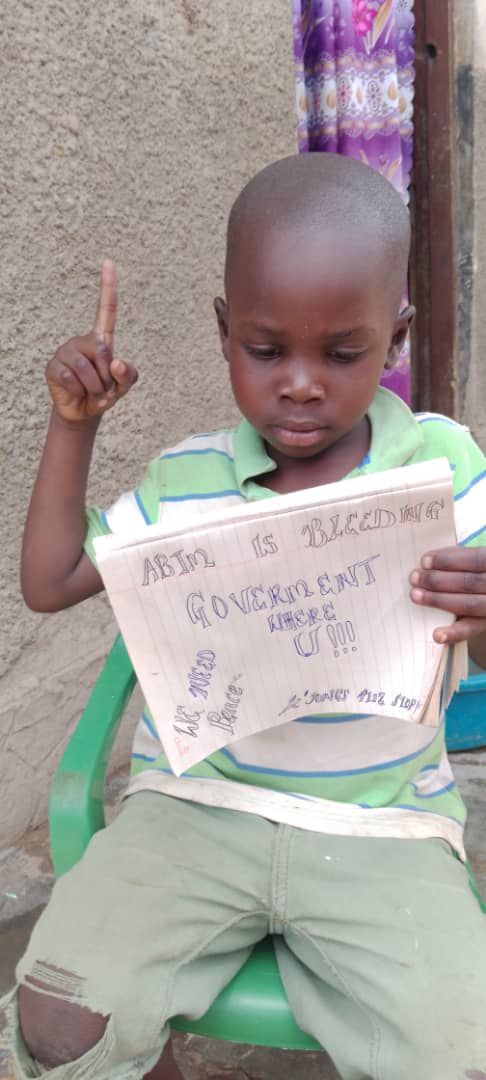 ABIM IS BLEEDING
GOVERMENT
WHERE
U!!!
WE NEED
Peace
PLIZ STOP